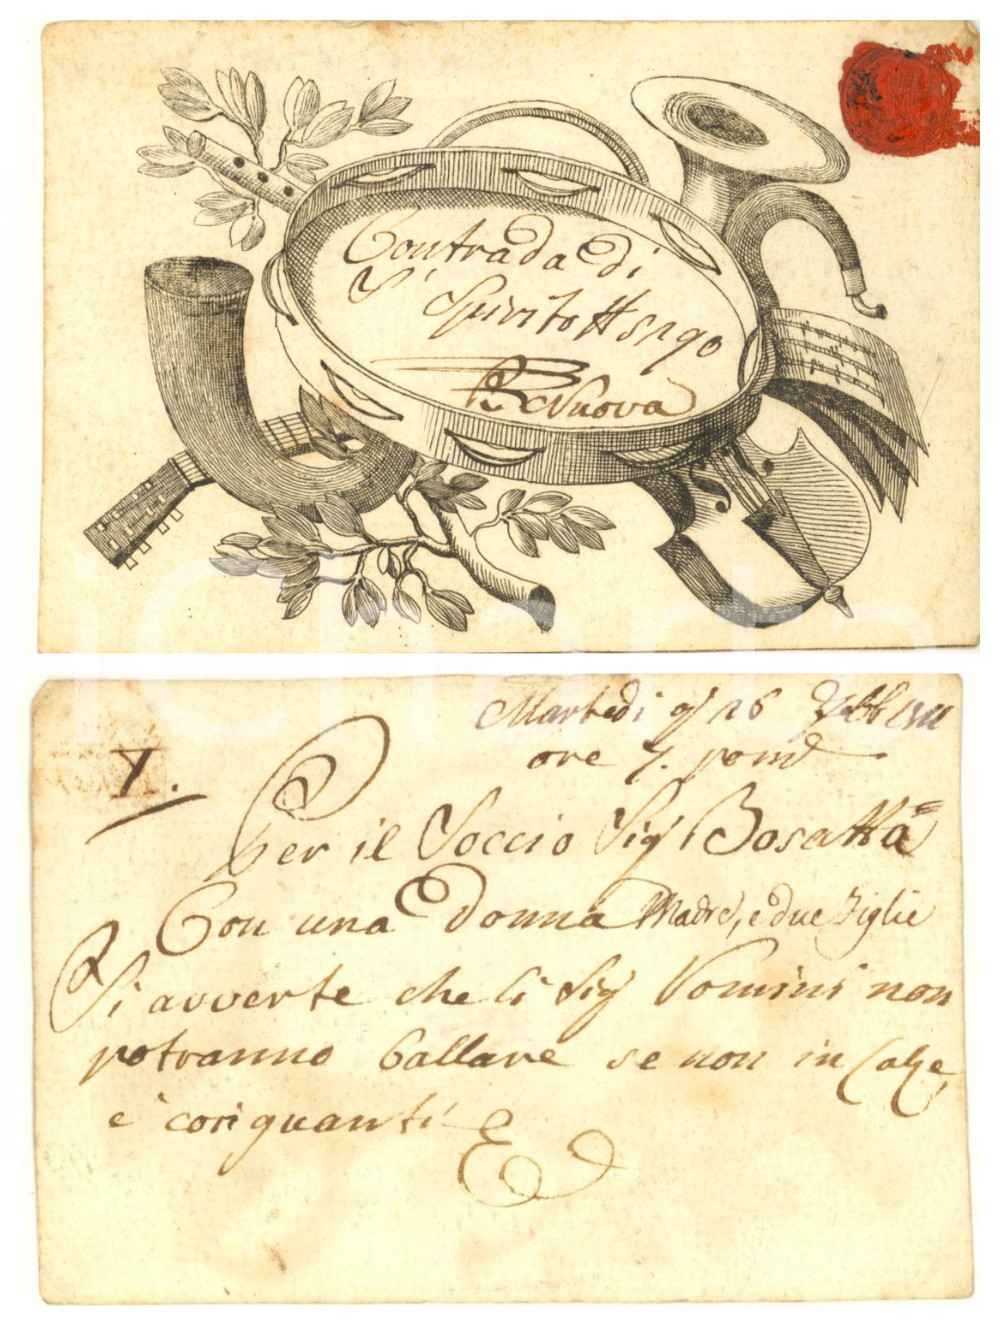 Contrada di
S. Spirito N 3190
Nuova
Martedi 26
ore 7. pom.e
Y.
Per il Soccio Sig. Bosatta
Con una Donna Madre, e due Figlie
Si avverte che li Sig. Uomini non
potranno ballare se non in Calze,
e' con guanti